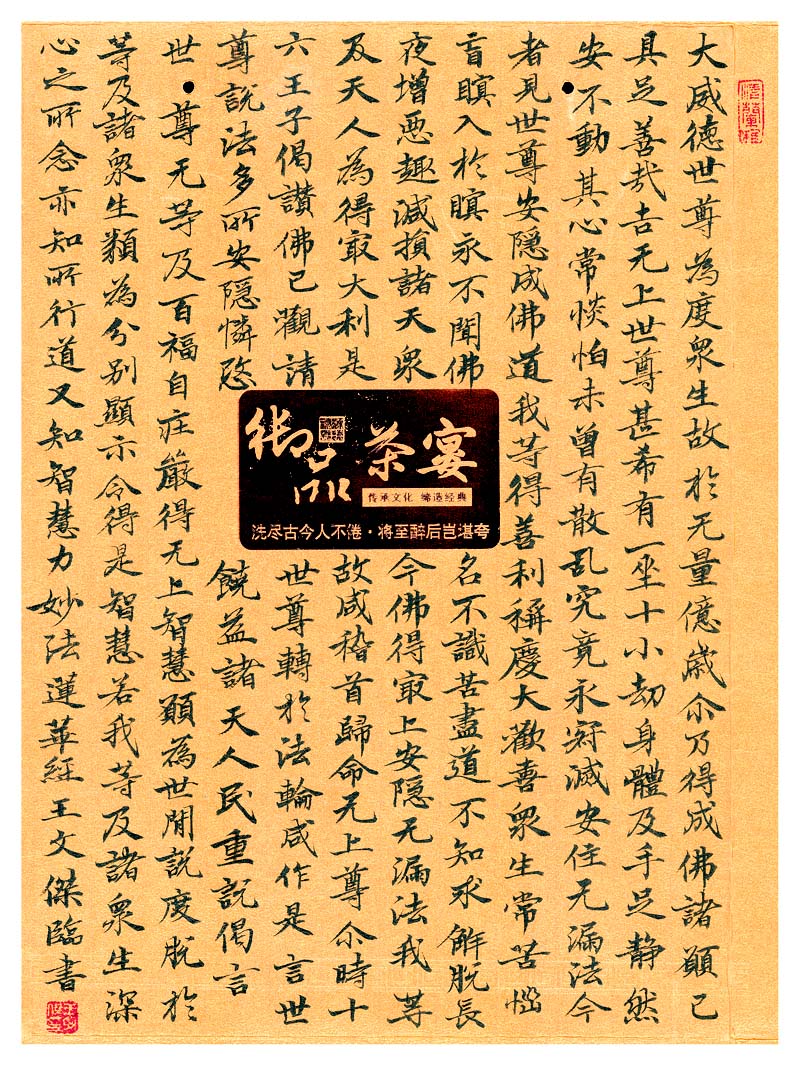 大威德世尊為度衆生故於无量億歲尒乃得成佛諸願已
具足善哉吉无上世尊甚希有一坐十小劫身體及手足静然
安不動其心常惔怕未曾有散乱究竟永寂滅安住无漏法今
者見世尊安隱成佛道我等得善利稱慶大歡喜衆生常苦惱
盲瞑入於瞑永不聞佛名不識苦盡道不知求解脫長
夜增惡趣減損諸天衆今佛得冣上安隱无漏法我等
及天人為得冣大利是故咸稽首歸命无上尊尒時十
六王子偈讚佛已觀請世尊轉於法輪咸作是言世
尊說法多所安隱憐愍饒益諸天人民重說偈言
世尊无等及百福自莊嚴得无上智慧願為世間說度脫於
等及諸衆生類為分別顯示令得是智慧若我等及諸衆生深
心之所念亦知所行道又知智慧力妙法蓮華經王文傑臨書
御品茶宴
传承文化 缔造经典
洗尽古今人不倦·将至醉后岂堪夸